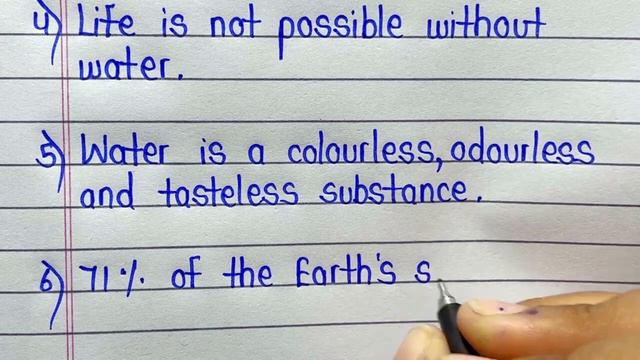 4) Life is not possible without
water.
5) Water is a colourless, odourless
and tasteless substance.
6) 71% of the Earth's s